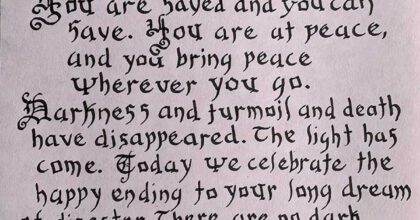 You are saved and you can
save. You are at peace,
and you bring peace
wherever you go.
Darkness and turmoil and death
have disappeared. The light has
come. Today we celebrate the
happy ending to your long dream
of disaster. There are no dark